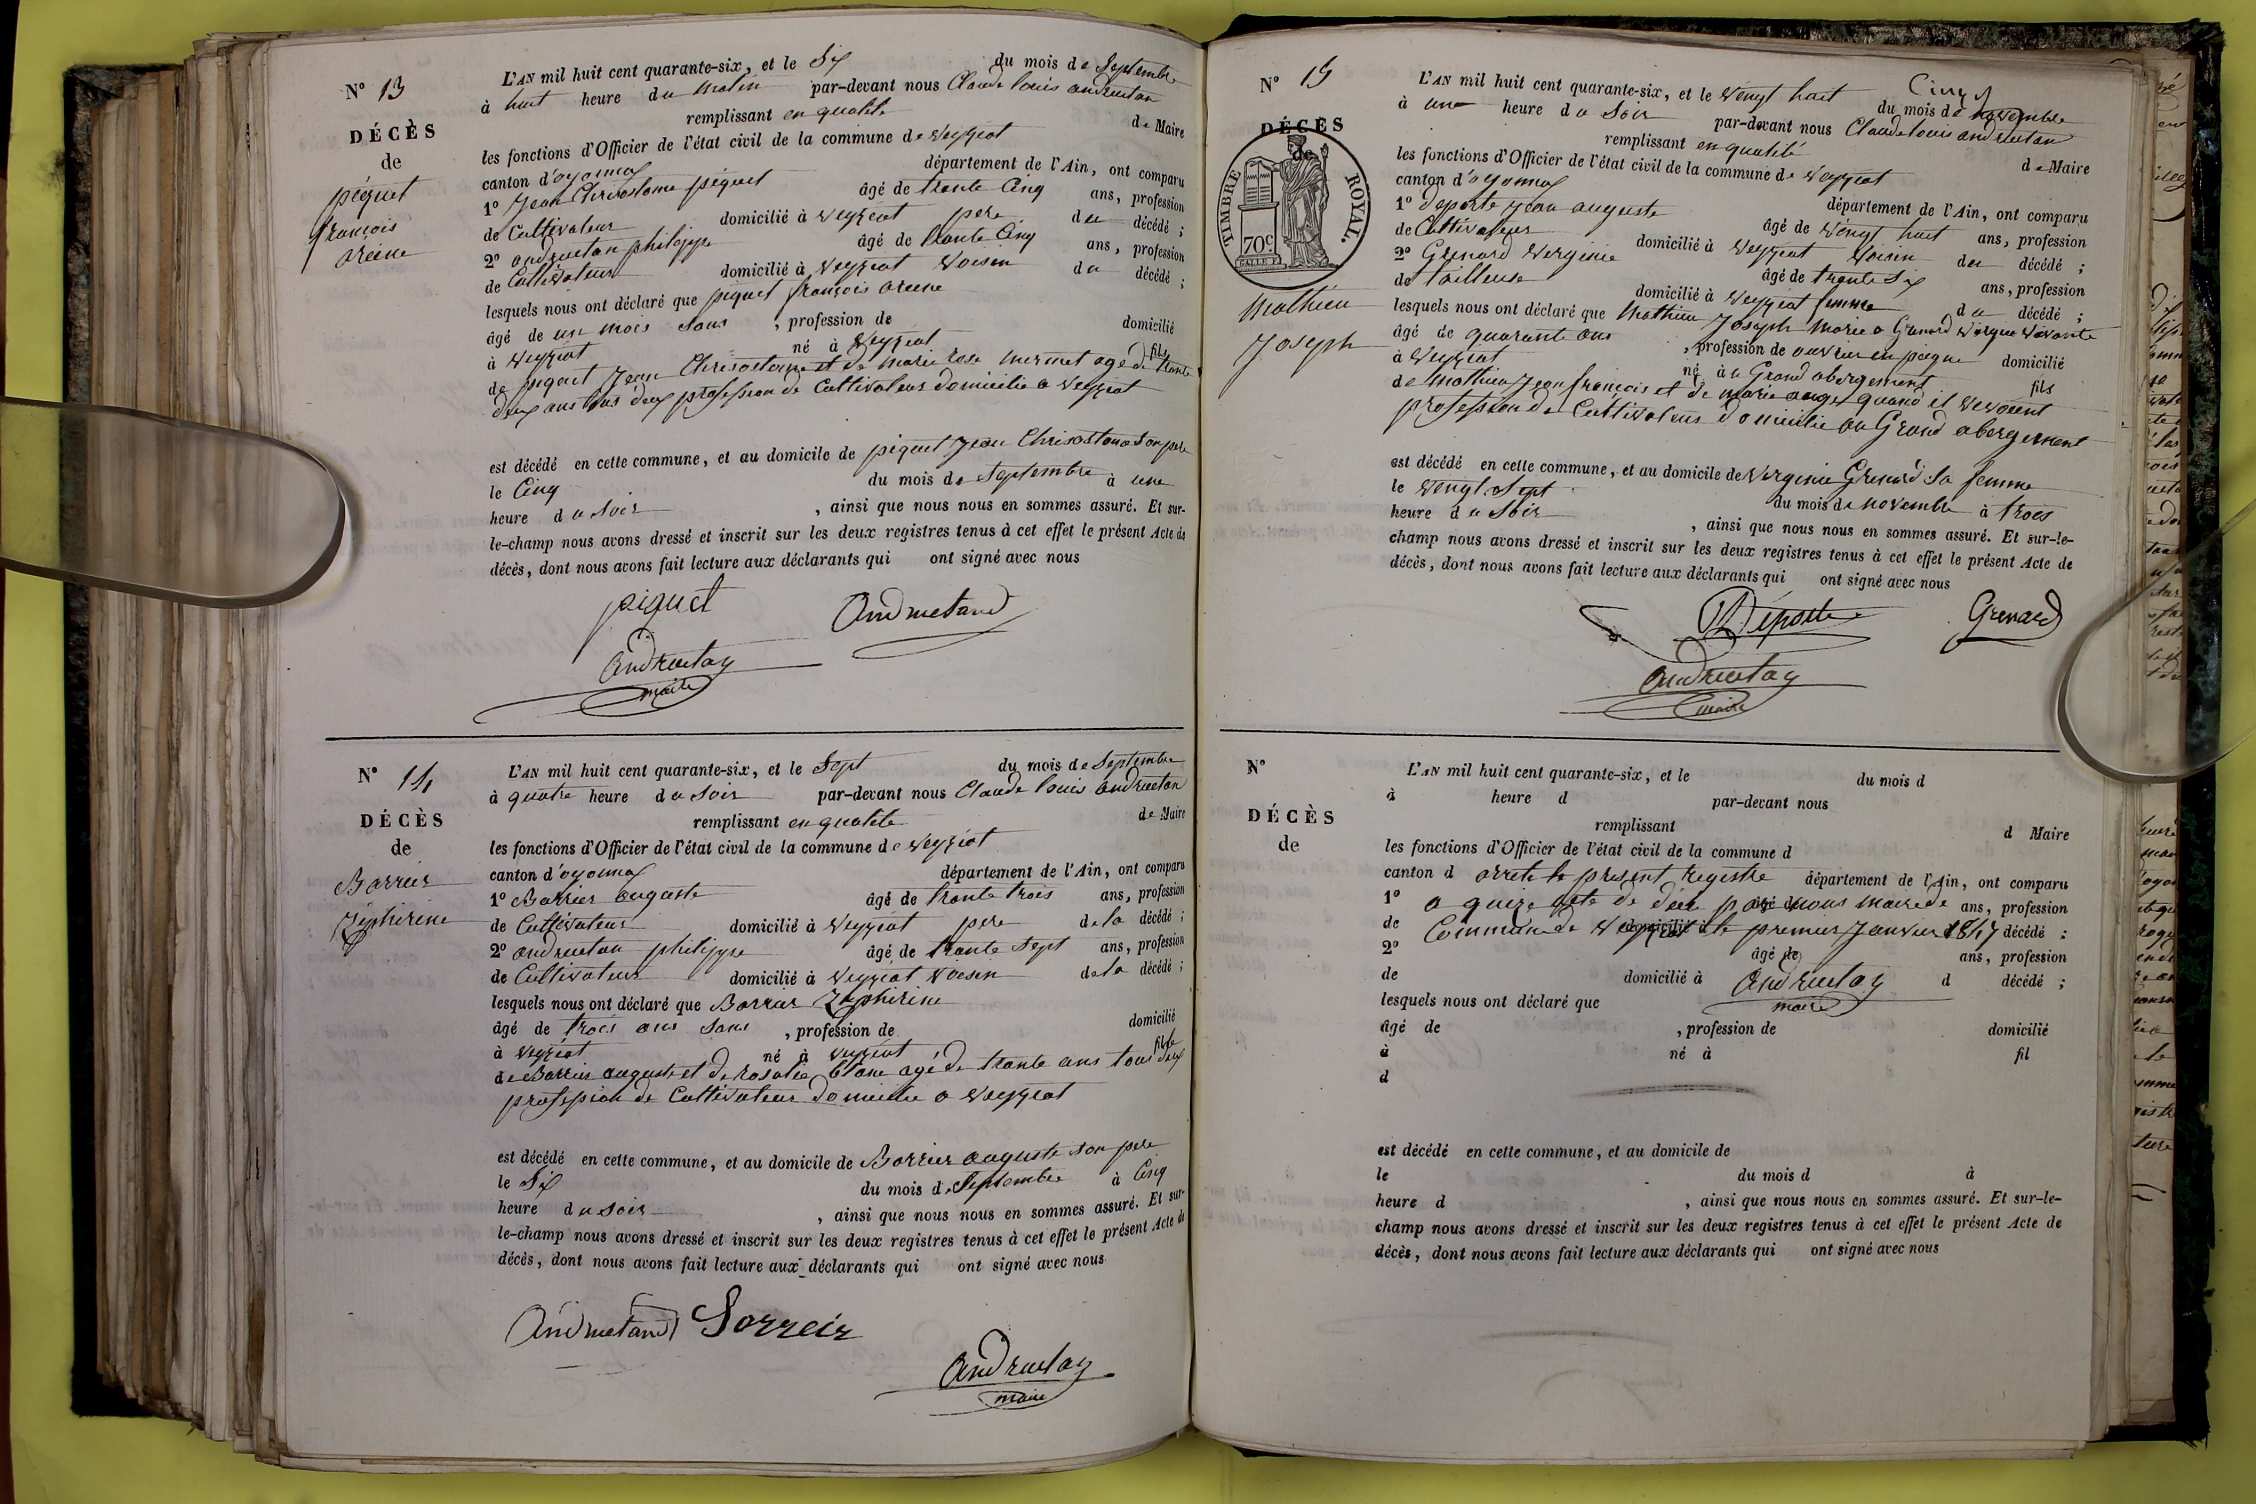 N° 13
DÉCÈS
de
piquet
françois
L'AN mil huit cent quarante-six, et le Six du mois de Septembre
à huit heure du Matin par-devant nous Claude louis andruetan
remplissant en qualité de Maire
les fonctions d'Officier de l'état civil de la commune de veyziat
canton d'oyonnax département de l'Ain, ont comparu
1° Jean Chrisostome piquet âgé de trante Cinq ans, profession
de Cultivateur domicilié à veyziat pere du décédé ;
2° andruetan philippe âgé de trante Cinq ans, profession
de Cultivateur domicilié à veyziat voisin du décédé ;
lesquels nous ont déclaré que piquet françois
âgé de un mois sans , profession de domicilié
à veyziat né à veyziat fils
de piquet Jean Chrisostome et de marie rose mermet agé de trante
deux ans tous deux profession de Cultivateurs domicilie a veyziat
est décédé en cette commune, et au domicile de piquet Jean Chrisostome son pere
le Cinq du mois de Septembre à une
heure du soir , ainsi que nous nous en sommes assuré. Et sur-
le-champ nous avons dressé et inscrit sur les deux registres tenus à cet effet le présent Acte de
décès, dont nous avons fait lecture aux déclarants qui ont signé avec nous
piquet Andruetand
andruetan
maire
N° 14
DÉCÈS
de
Borrier
Zephirine
L'AN mil huit cent quarante-six, et le Sept du mois de Septembre
à quatre heure du soir par-devant nous Claude louis andruetan
remplissant en qualité de Maire
les fonctions d'Officier de l'état civil de la commune de veyziat
canton d'oyonnax département de l'Ain, ont comparu
1° Borrier auguste âgé de trante trois ans, profession
de Cultivateur domicilié à veyziat pere de la décédé ;
2° andruetan philippe âgé de trante Sept ans, profession
de Cultivateur domicilié à veyziat voisin de la décédé ;
lesquels nous ont déclaré que Borrier Zephirine
âgé de trois ans sans , profession de domicilié
à veyziat né à veyziat fille
de Borrier auguste et de rosalie blanc agé de trante ans tous deux
profession de Cultivateur domicilie a veyziat
est décédé en cette commune, et au domicile de Borrier auguste son pere
le Six du mois de Septembre à Cinq
heure du soir , ainsi que nous nous en sommes assuré. Et sur-
le-champ nous avons dressé et inscrit sur les deux registres tenus à cet effet le présent Acte de
décès, dont nous avons fait lecture aux déclarants qui ont signé avec nous
Andruetand
andruetan
maire
N° 15
DÉCÈS
de
TIMBRE ROYAL.
70c.
Mathieu
Joseph
L'AN mil huit cent quarante-six, et le vengt huit du mois de novembre
à une heure du Soir par-devant nous Claude louis andruetan
remplissant en qualité de Maire
les fonctions d'Officier de l'état civil de la commune de veyziat
canton d'oyonnax département de l'Ain, ont comparu
1° deporte jean auguste âgé de vengt huit ans, profession
de Cultivateur domicilié à veyziat voisin du décédé ;
2° Grenard verginie âgé de trante Six ans, profession
de tailleuse domicilié à veyziat femme du décédé ;
lesquels nous ont déclaré que Mathieu Joseph
âgé de quarante ans , profession de ouvrier en peigne domicilié
à veyziat né à Grand abergement fils
de Mathieu Jean françois et de marie quand il vevoient
profession de Cultivateurs domicilie au Grand abergement
est décédé en cette commune, et au domicile de verginie Grenard sa femme
le vengt Sept du mois de novembre à trois
heure du Soir , ainsi que nous nous en sommes assuré. Et sur-le-
champ nous avons dressé et inscrit sur les deux registres tenus à cet effet le présent Acte de
décès, dont nous avons fait lecture aux déclarants qui ont signé avec nous
Déporte Grenard
andruetan
maire
N°
DÉCÈS
de
L'AN mil huit cent quarante-six, et le du mois d
à heure d par-devant nous
remplissant d Maire
les fonctions d'Officier de l'état civil de la commune d
canton d arrete le present registre département de l'Ain, ont comparu
1° a quize acte de décé par nous maire de âgé de ans, profession
de Commune de veyziat le premier Janvier 1847 domicilié à décédé ;
2° âgé de ans, profession
de domicilié à andruetan d décédé ;
maire
lesquels nous ont déclaré que
âgé de , profession de domicilié
à né à fil
d
est décédé en cette commune, et au domicile de
le du mois d à
heure d , ainsi que nous nous en sommes assuré. Et sur-le-
champ nous avons dressé et inscrit sur les deux registres tenus à cet effet le présent Acte de
décès, dont nous avons fait lecture aux déclarants qui ont signé avec nous